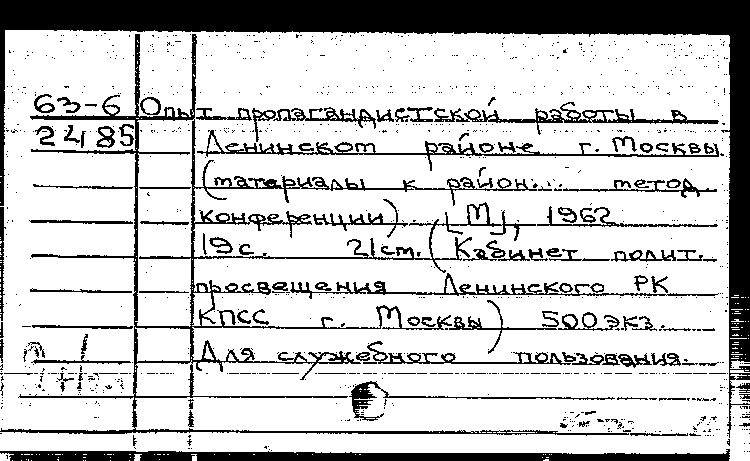 63-6 Опыт пропагандистской работы в
2485 Ленинском районе г. Москвы
(материалы к район... метод.
конференции). [М], 1962
19с. 21cm. (Кабинет полит.
просвещения Ленинского РК
КПСС г. Москвы) 500 экз.
Для служебного пользования.